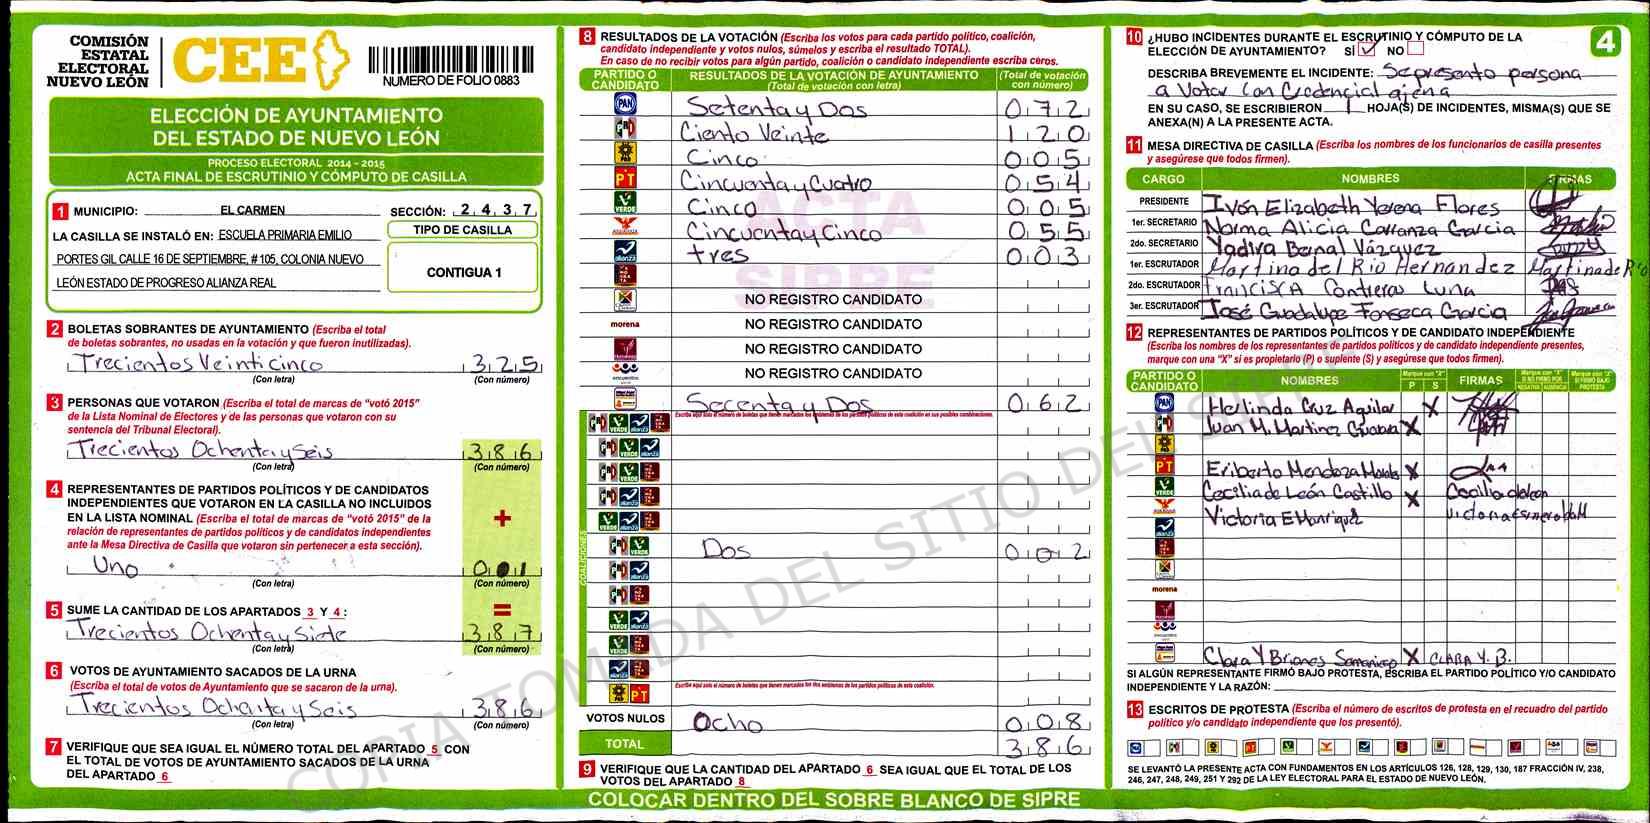 COMISIÓN
ESTATAL
ELECTORAL
NUEVO LEÓN
CEE
NUMERO DE FOLIO 0883
ELECCIÓN DE AYUNTAMIENTO
DEL ESTADO DE NUEVO LEÓN
PROCESO ELECTORAL 2014 - 2015
ACTA FINAL DE ESCRUTINIO Y CÓMPUTO DE CASILLA
1 MUNICIPIO: EL CARMEN SECCIÓN: 2 4 3 7
LA CASILLA SE INSTALÓ EN: ESCUELA PRIMARIA EMILIO
PORTES GIL CALLE 16 DE SEPTIEMBRE, # 105, COLONIA NUEVO
LEÓN ESTADO DE PROGRESO ALIANZA REAL
TIPO DE CASILLA
CONTIGUA 1
2 BOLETAS SOBRANTES DE AYUNTAMIENTO (Escriba el total
de boletas sobrantes, no usadas en la votación y que fueron inutilizadas).
Trecientos Veinticinco 3 2 5
(Con letra) (Con número)
3 PERSONAS QUE VOTARON (Escriba el total de marcas de "votó 2015"
de la Lista Nominal de Electores y de las personas que votaron con su
sentencia del Tribunal Electoral).
Trecientos Ochenta y Seis 3 8 6
(Con letra) (Con número)
4 REPRESENTANTES DE PARTIDOS POLÍTICOS Y DE CANDIDATOS
INDEPENDIENTES QUE VOTARON EN LA CASILLA NO INCLUIDOS
EN LA LISTA NOMINAL (Escriba el total de marcas de "votó 2015" de la
relación de representantes de partidos políticos y de candidatos independientes
ante la Mesa Directiva de Casilla que votaron sin pertenecer a esta sección).
+
Uno 0 0 1
(Con letra) (Con número)
5 SUME LA CANTIDAD DE LOS APARTADOS 3 Y 4 :
=
Trecientos Ochenta y Siete 3 8 7
(Con letra) (Con número)
6 VOTOS DE AYUNTAMIENTO SACADOS DE LA URNA
(Escriba el total de votos de Ayuntamiento que se sacaron de la urna).
Trecientos Ochenta y Seis 3 8 6
(Con letra) (Con número)
7 VERIFIQUE QUE SEA IGUAL EL NÚMERO TOTAL DEL APARTADO 5 CON
EL TOTAL DE VOTOS DE AYUNTAMIENTO SACADOS DE LA URNA
DEL APARTADO 6
8 RESULTADOS DE LA VOTACIÓN (Escriba los votos para cada partido político, coalición,
candidato independiente y votos nulos, súmelos y escriba el resultado TOTAL).
En caso de no recibir votos para algún partido, coalición o candidato independiente escriba ceros.
PARTIDO O CANDIDATO
RESULTADOS DE LA VOTACIÓN DE AYUNTAMIENTO
(Total de votación con letra)
(Total de votación con número)
PAN Setenta y Dos 0 7 2
PRI Ciento Veinte 1 2 0
PRD Cinco 0 0 5
PT Cincuenta y Cuatro 0 5 4
VERDE Cinco 0 0 5
Cincuenta y Cinco 0 5 5
alianza tres 0 0 3
ACTA
SIPRE
NO REGISTRO CANDIDATO
morena NO REGISTRO CANDIDATO
NO REGISTRO CANDIDATO
encuentro NO REGISTRO CANDIDATO
Secenta y Dos 0 6 2
Escriba aquí solo el número de boletas que tienen marcados los emblemas de los partidos políticos de esta coalición en sus posibles combinaciones.
COALICIONES
PRI VERDE Dos 0 0 2
Escriba aquí solo el número de boletas que tienen marcados los dos emblemas de los partidos políticos de esta coalición.
PRD PT
VOTOS NULOS Ocho 0 0 8
TOTAL 3 8 6
9 VERIFIQUE QUE LA CANTIDAD DEL APARTADO 6 SEA IGUAL QUE EL TOTAL DE LOS
VOTOS DEL APARTADO 8
COLOCAR DENTRO DEL SOBRE BLANCO DE SIPRE
10 ¿HUBO INCIDENTES DURANTE EL ESCRUTINIO Y CÓMPUTO DE LA
ELECCIÓN DE AYUNTAMIENTO? SÍ ✓ NO
4
DESCRIBA BREVEMENTE EL INCIDENTE: Se presento persona
a Votar con Credencial ajena
EN SU CASO, SE ESCRIBIERON 1 HOJA(S) DE INCIDENTES, MISMA(S) QUE SE
ANEXA(N) A LA PRESENTE ACTA.
11 MESA DIRECTIVA DE CASILLA (Escriba los nombres de los funcionarios de casilla presentes
y asegúrese que todos firmen).
CARGO NOMBRES FIRMAS
PRESIDENTE Ivón Elizabeth Yerena Flores
1er. SECRETARIO Norma Alicia Carranza Garcia
2do. SECRETARIO Yadira Bernal Vázquez
1er. ESCRUTADOR Martina del Rio Hernandez Martina de Rio
2do. ESCRUTADOR Francisca Contreras Luna
3er. ESCRUTADOR José Guadalupe Fonseca Garcia
12 REPRESENTANTES DE PARTIDOS POLÍTICOS Y DE CANDIDATO INDEPENDIENTE
(Escriba los nombres de los representantes de partidos políticos y de candidato independiente presentes,
marque con una "X" si es propietario (P) o suplente (S) y asegúrese que todos firmen).
PARTIDO O CANDIDATO
NOMBRES
Marque con "X"
P S
FIRMAS
Marque con "X" SI NO FIRMÓ POR
NEGATIVA AUSENCIA
Marque con "X" SI FIRMÓ BAJO PROTESTA
PAN Herlinda Cruz Aguilar X
PRI Juan M. Martinez X
PT Eriberto Mendoza X
VERDE Cecilia de León Castillo X Cecilia deleon
Victoria E Manriquez
morena
Clara Y Briones X CLARA Y. B.
SI ALGÚN REPRESENTANTE FIRMÓ BAJO PROTESTA, ESCRIBA EL PARTIDO POLÍTICO Y/O CANDIDATO
INDEPENDIENTE Y LA RAZÓN:
13 ESCRITOS DE PROTESTA (Escriba el número de escritos de protesta en el recuadro del partido
político y/o candidato independiente que los presentó).
SE LEVANTÓ LA PRESENTE ACTA CON FUNDAMENTOS EN LOS ARTÍCULOS 126, 128, 129, 130, 187 FRACCIÓN IV, 238,
246, 247, 248, 249, 251 Y 292 DE LA LEY ELECTORAL PARA EL ESTADO DE NUEVO LEÓN.
COPIA TOMADA DEL SITIO DEL SIPRE